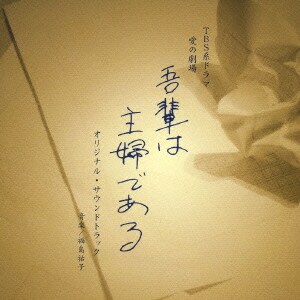 TBS系ドラマ
愛の劇場
吾輩は
主婦である
オリジナル・サウンドトラック
音楽/福島祐子